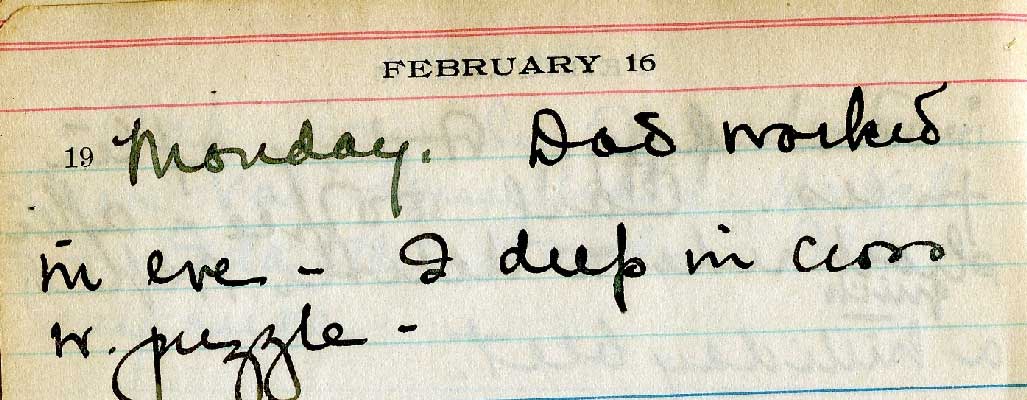 FEBRUARY 16
19 Monday. Dad worked
in eve - I deep in cross
w. puzzle -